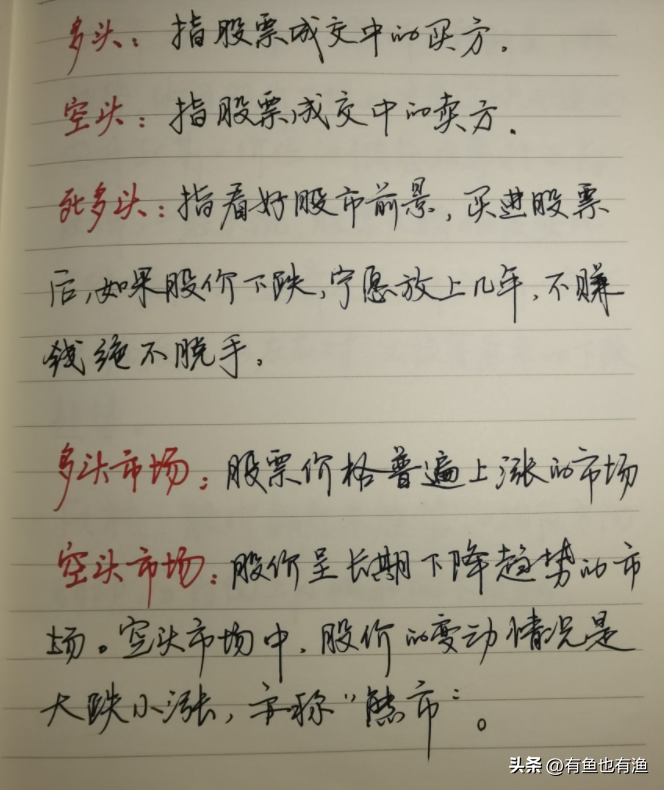 多头：指股票成交中的买方．
空头：指股票成交中的卖方．
死多头：指看好股市前景，买进股票
后，如果股价下跌，宁愿放上几年，不赚
钱绝不脱手。
多头市场：股票价格普遍上涨的市场
空头市场：股价呈长期下降趋势的市
场。空头市场中，股价的变动情况是
大跌小涨，亦称“熊市”。
头条 @有鱼也有渔